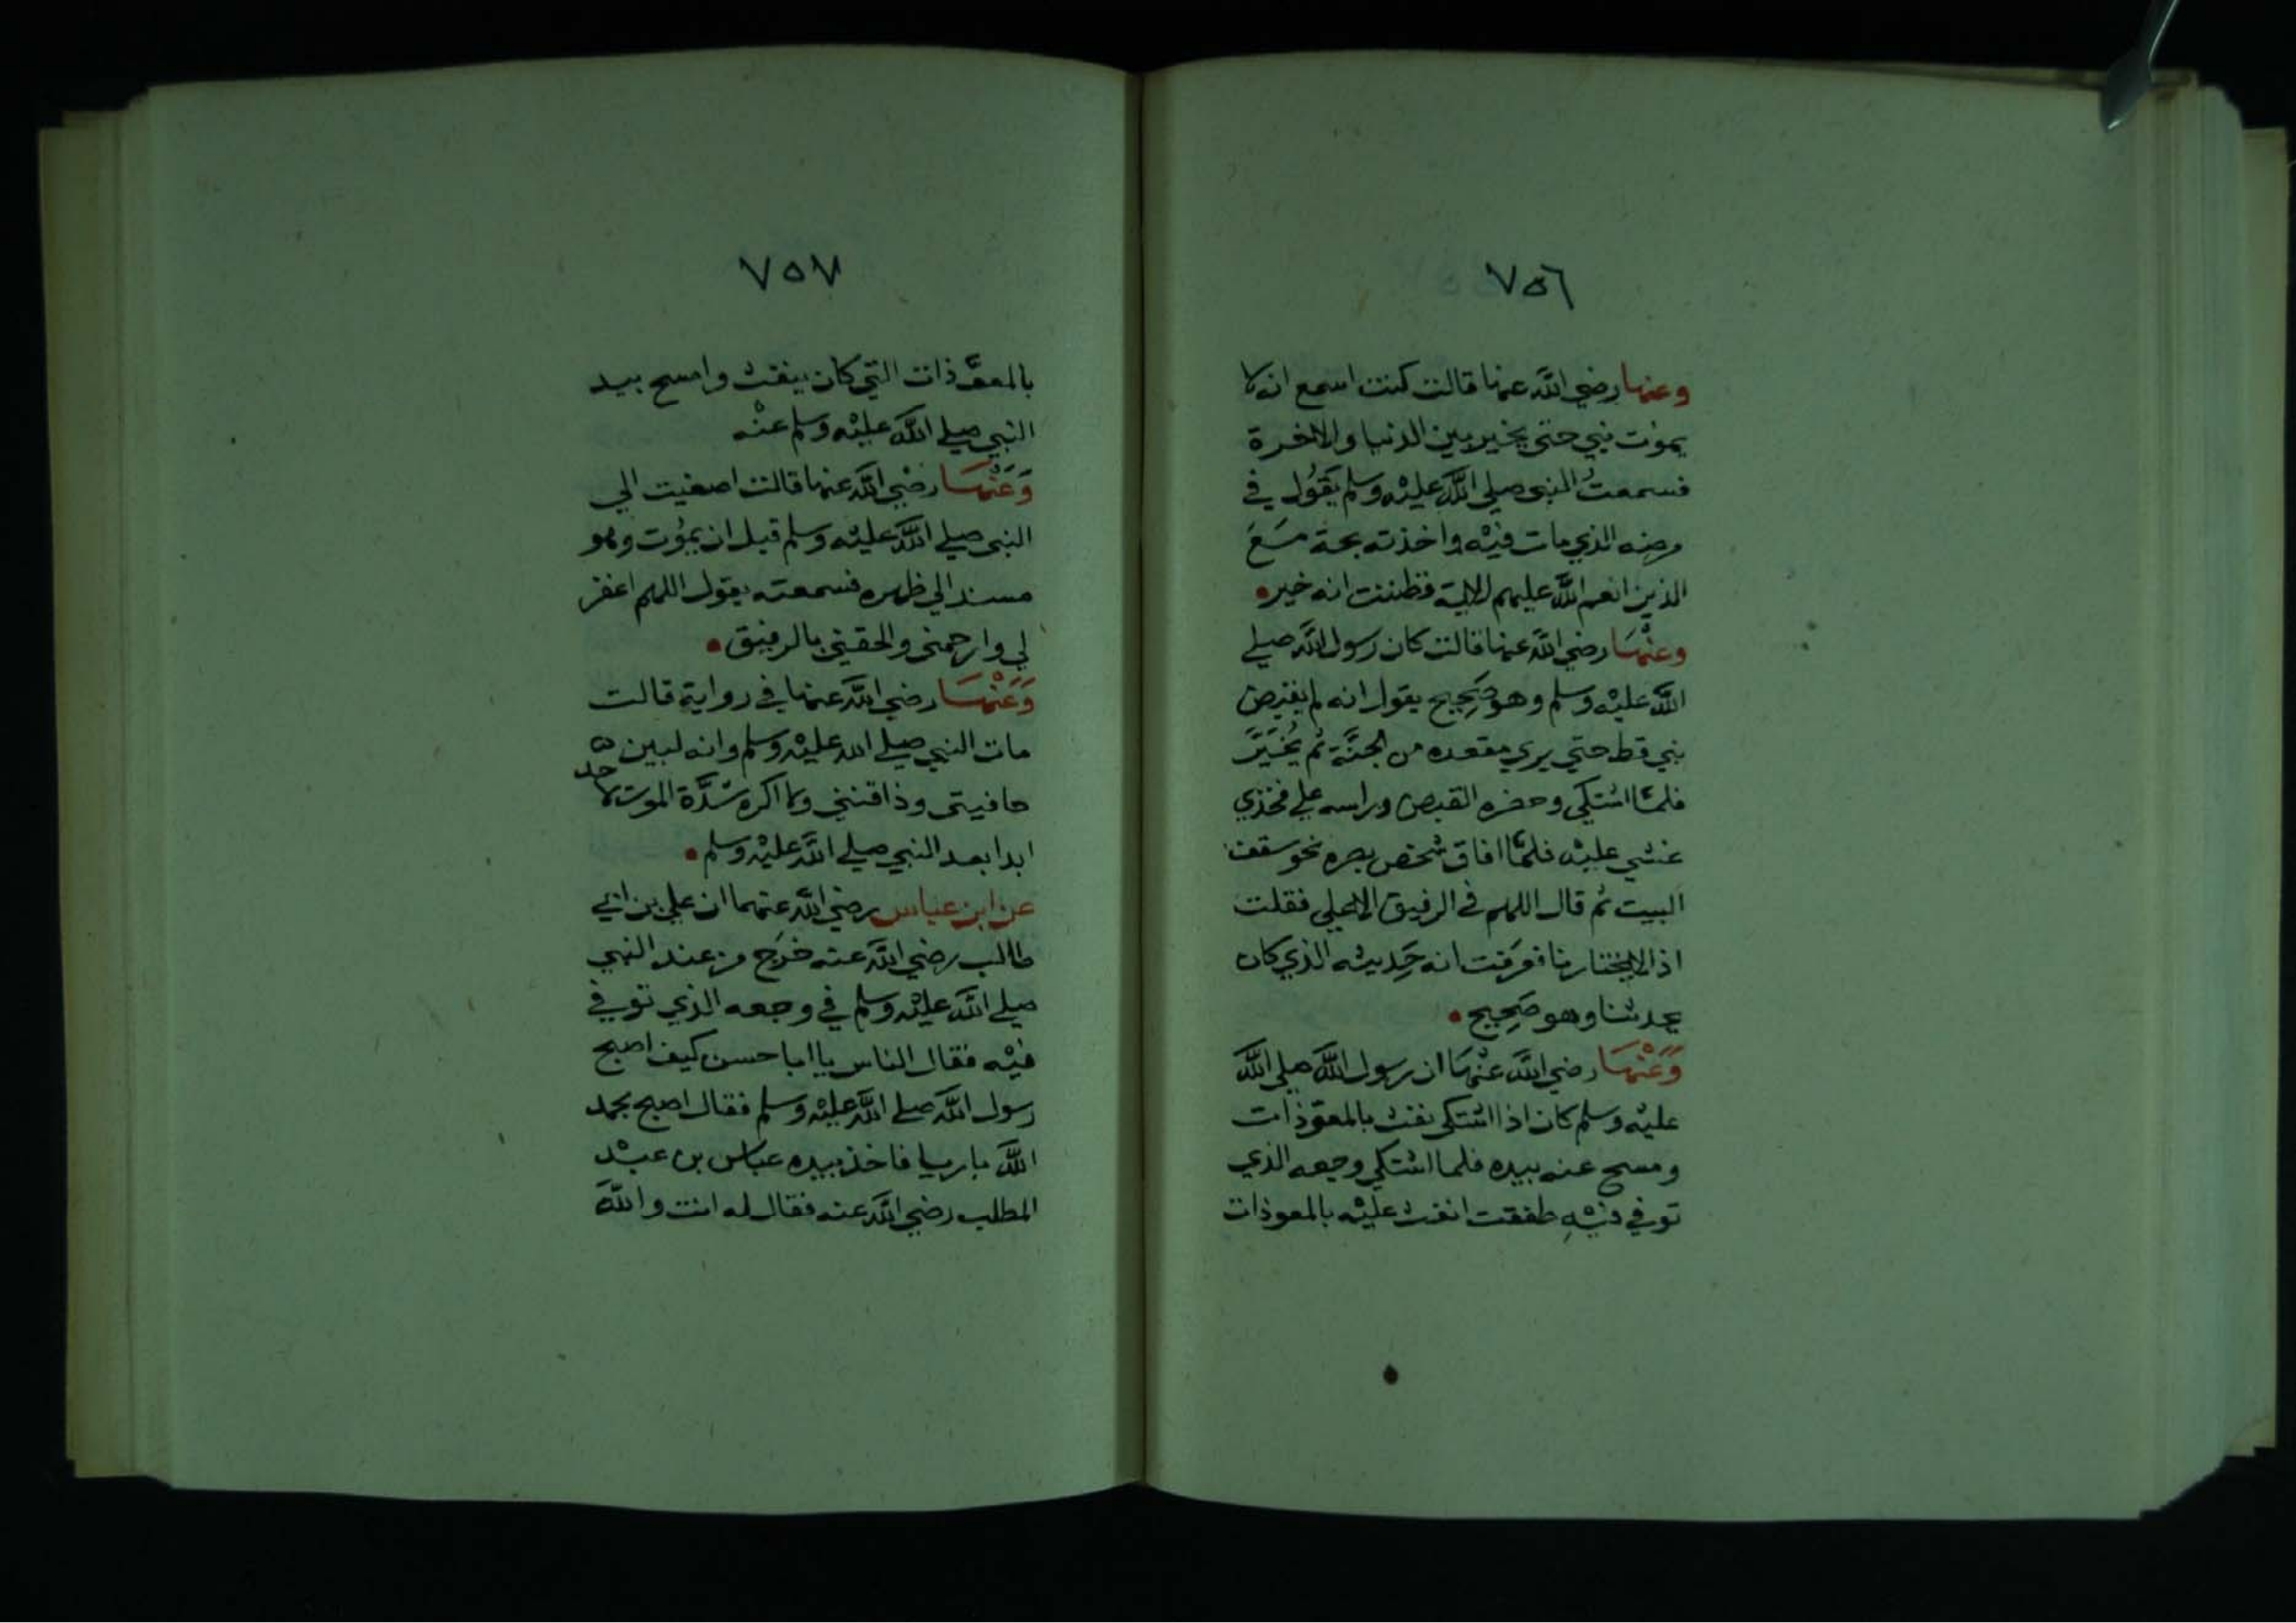 ٧٥٦
وعنها رضي الله عنها قالت كنت اسمع انه لا
يموت نبي حتى يخير بين الدنيا والاخرة
فسمعتُ النبي صلي الله عليه وسلم يقول في
مرضه الذي مات فيه واخذته بحة مَعَ
الذين انعم الله عليهم الاية فظننت انه خير.
وعنها رضي الله عنها قالت كان رسول الله صلي
الله عليه وسلم وهو صحيح يقول انه لم يقبض
نبي قط حتي يري مقعده من الجنَّة ثم يُخيَّرَ
فلمَّا اشتكي وحضره القبض وراسه علي فخذي
غشي عليه فلمَّا افاق شخص بصره نحو سقف
البيت ثم قال اللهم في الرفيق الاعلي فقلت
اذا لا يختارنا فعرفت انه حَديثه الذي كان
يحدثنا وهو صَحيح.
وَعَنْهَا رضي الله عنْهَا ان رسول الله صلي الله
عليه وسلم كان اذا اشتكي نفث بالمعوّذات
ومسح عنه بيده فلما اشتكي وجعه الذي
توفي فيْهِ طفقت انفث عليه بالمعوذات
٧٥٧
بالمعوَّذات التي كان ينفث وامسح بيد
النبي صلي الله عليْه وسلم عنْه
وَعَنْهَا رضي الله عنها قالت اصغيت الي
النبي صلي الله عليه وسلم قبل ان يموت وهو
مسند الي ظهره فسمعته يقول اللهم اغفر
لي وارحمني والحقني بالرفيق.
وَعَنْهَا رضي الله عنها في رواية قالت
مات النبي صلي الله عليه وسلم وانه لبين
حاقنيتى وذاقنتي ولا اكره شدَّة الموت لاحد
ابدا بعد النبي صلي الله عليه وسلم.
عن ابن عباس رضي الله عنهما ان علي بن ابي
طالب رضي الله عنه خرج من عند النبي
صلي الله عليه وسلم في وجعه الذي توفي
فيْه فقال الناس يا ابا حسن كيف اصبح
رسول الله صلي الله عليه وسلم فقال اصبح بحمد
الله باريا فاخذ بيده عباس بن عبْد
المطلب رضي الله عنه فقال له انت والله